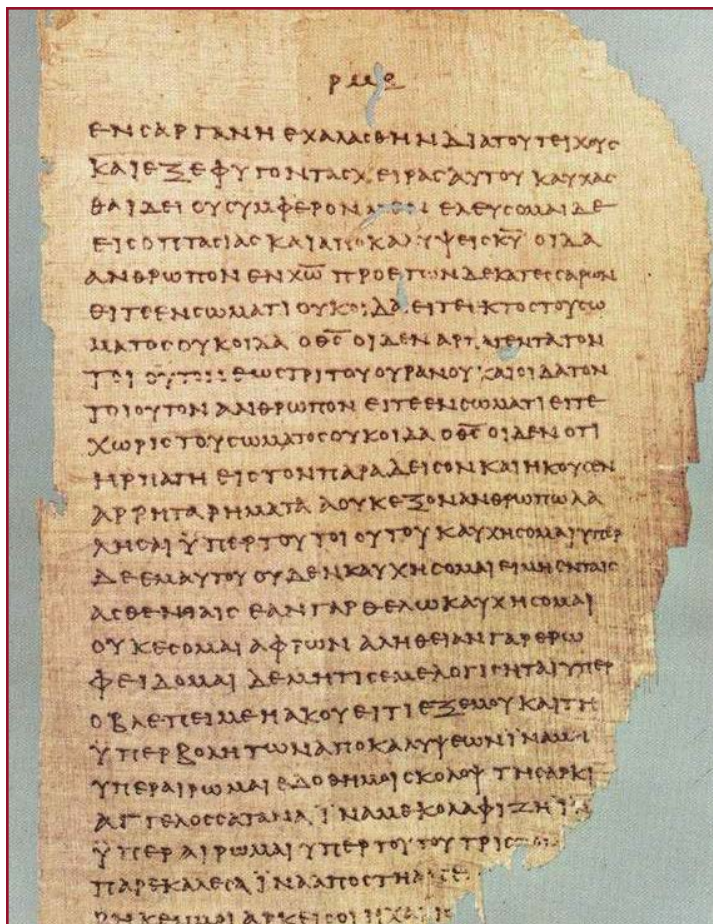 ΕΝϹΑΡΓΑΝΗ ΕΧΑΛΑϹΘΗΝ ΔΙΑΤΟΥΤΕΙΧΟΥϹ
ΚΑΙΕΞΕΦΥΓΟΝΤΑϹΧΕΙΡΑϹΑΥΤΟΥ ΚΑΥΧΑϹ
ΘΑΙΔΕΙ ΟΥϹΥΜΦΕΡΟΝ ΜΕΝ ΕΛΕΥϹΟΜΑΙΔΕ
ΕΙϹΟΠΤΑϹΙΑϹ ΚΑΙΑΠΟΚΑΛΥΨΕΙϹΚ̅Υ̅ ΟΙΔΑ
ΑΝΘΡΩΠΟΝ ΕΝΧ̅Ω̅ ΠΡΟΕΤΩΝΔΕΚΑΤΕϹϹΑΡΩΝ
ΕΙΤΕΕΝϹΩΜΑΤΙ ΟΥΚΟΙΔΑ ΕΙΤΕΕΚΤΟϹΤΟΥϹΩ
ΜΑΤΟϹΟΥΚΟΙΔΑ ΟΘ̅Ϲ̅ ΟΙΔΕΝ ΑΡΠΑΓΕΝΤΑΤΟΝ
ΤΟΙΟΥΤΟΝΕΩϹΤΡΙΤΟΥΟΥΡΑΝΟΥ ΚΑΙΟΙΔΑΤΟΝ
ΤΟΙΟΥΤΟΝ ΑΝΘΡΩΠΟΝ ΕΙΤΕΕΝϹΩΜΑΤΙΕΙΤΕ
ΧΩΡΙϹΤΟΥϹΩΜΑΤΟϹΟΥΚΟΙΔΑ ΟΘ̅Ϲ̅ ΟΙΔΕΝΟΤΙ
ΗΡΠΑΓΗ ΕΙϹΤΟΝΠΑΡΑΔΕΙϹΟΝ ΚΑΙΗΚΟΥϹΕΝ
ΑΡΡΗΤΑΡΗΜΑΤΑ ΑΟΥΚΕΞΟΝΑΝΘΡΩΠΩΛΑ
ΛΗϹΑΙ ΫΠΕΡΤΟΥΤΟΙΟΥΤΟΥ ΚΑΥΧΗϹΟΜΑΙΥΠΕΡ
ΔΕΕΜΑΥΤΟΥ ΟΥΔΕΝΚΑΥΧΗϹΟΜΑΙΕΙΜΗΕΝΤΑΙϹ
ΑϹΘΕΝΗΑΙϹ ΕΑΝΓΑΡΘΕΛΩΚΑΥΧΗϹΟΜΑΙ
ΟΥΚΕϹΟΜΑΙ ΑΦΡΩΝ ΑΛΗΘΕΙΑΝΓΑΡΕΡΩ
ΦΕΙΔΟΜΑΙ ΔΕΜΗΤΙϹΕΜΕΛΟΓΙϹΗΤΑΙΥΠΕΡ
ΟΒΛΕΠΕΙΜΕΗΑΚΟΥΕΙΤΙΕΞΕΜΟΥΚΑΙΤΗ
ΫΠΕΡΒΟΛΗΤΩΝΑΠΟΚΑΛΥΨΕΩΝΙΝΑΜΗ
ΥΠΕΡΑΙΡΩΜΑΙΕΔΟΘΗΜΟΙϹΚΟΛΟΨ ΤΗϹΑΡΚΙ
ΑΓΓΕΛΟϹϹΑΤΑΝΑ ΪΝΑΜΕΚΟΛΑΦΙΖΗ
ΫΠΕΡΑΙΡΩΜΑΙ ΥΠΕΡΤΟΥΤΟΥΤΡΙϹ
ΠΑΡΕΚΑΛΕϹΑ ΪΝΑΑΠΟϹΤΗ
ΑΡΚΕΙϹΟΙΗΧΑΡΙϹ